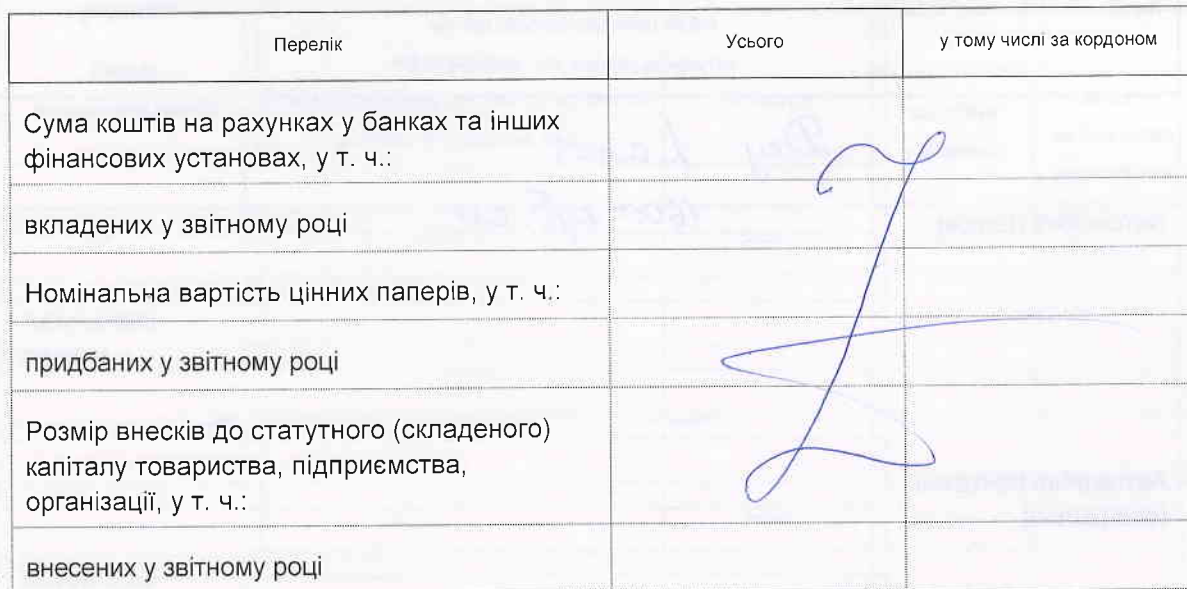 Перелік Усього у тому числі за кордоном
Сума коштів на рахунках у банках та інших
фінансових установах, у т. ч.:
вкладених у звітному році
Номінальна вартість цінних паперів, у т. ч.:
придбаних у звітному році
Розмір внесків до статутного (складеного)
капіталу товариства, підприємства,
організації, у т. ч.:
внесених у звітному році